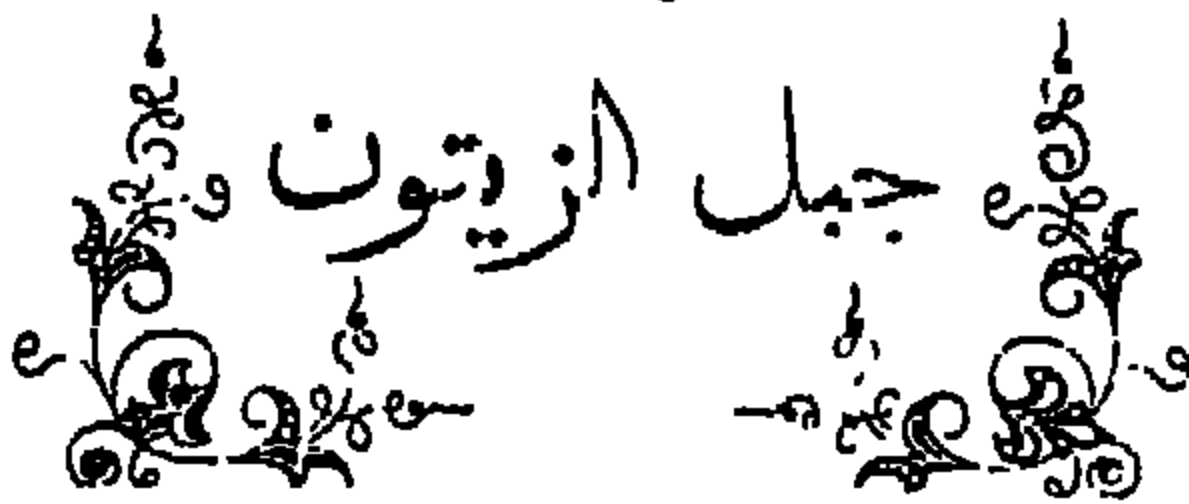 جبل الزيتون